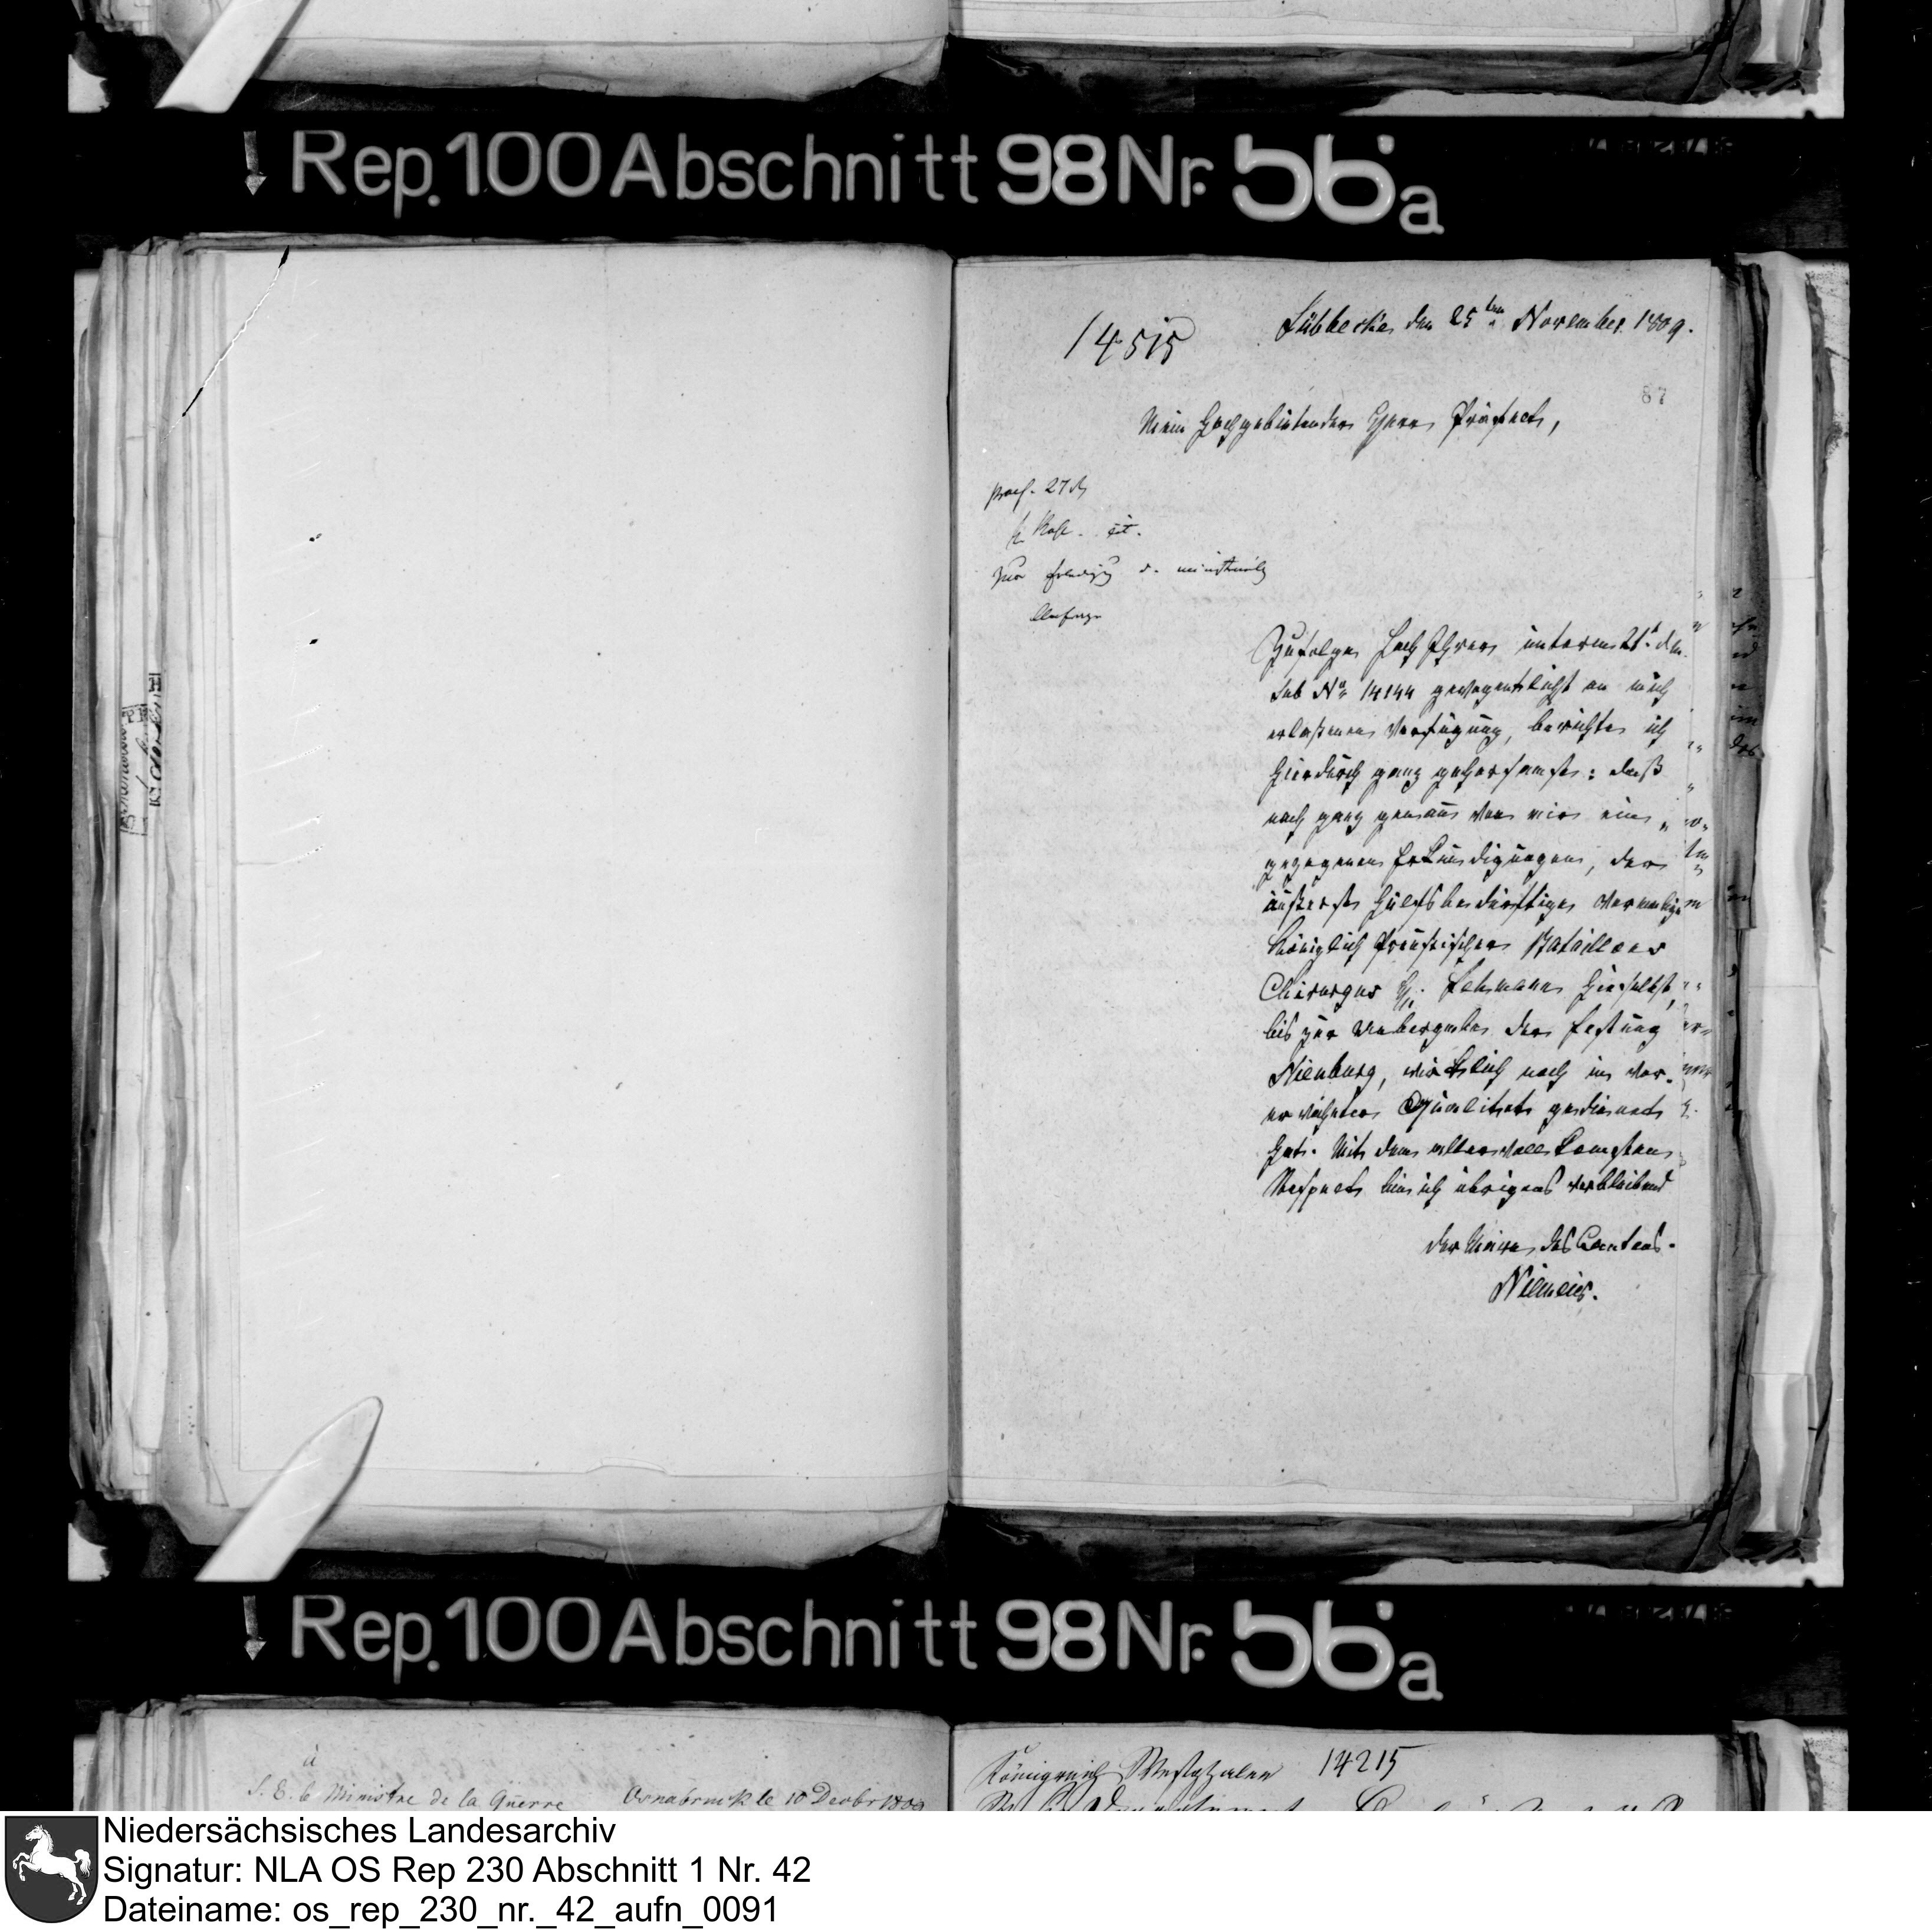 Rep. 100 Abschnitt 98 Nr. 56a
14515
Lübbecke den 25ten November 1809.
87
Mein Hochgebietender Herr Präfect,
praes. 27
zur Erledigung d.
Anfrage
Zufolge Hoch Ihrer unterm 21t. d. M.
sub No. 14144 gewogentlichst an mich
erlaßenen Verfügung, berichte ich
hierdurch ganz gehorsamst: daß
nach ganz genau von mir ein„
gezogenen Erkundigungen, der
äußerst hülfsbedürftige vormalige
Königlich Preußischer Bataillons
Chirurgus H. Lehmann hierselbst,
bis zur Uebergabe der Festung
Nienburg, wirklich noch in vor„
erwähnter Qualitaet gedienet
hat. Mit dem allervollkomsten
Respect bin ich übrigens verbleibend
der Maire des Cantons.
Niemeier.
Rep. 100 Abschnitt 98 Nr. 56a
à
S. E. le Ministre de la Guerre
Osnabruck le 10 Decbr 1809
Königreich Westphalen 14215
Niedersächsisches Landesarchiv
Signatur: NLA OS Rep 230 Abschnitt 1 Nr. 42
Dateiname: os_rep_230_nr._42_aufn_0091